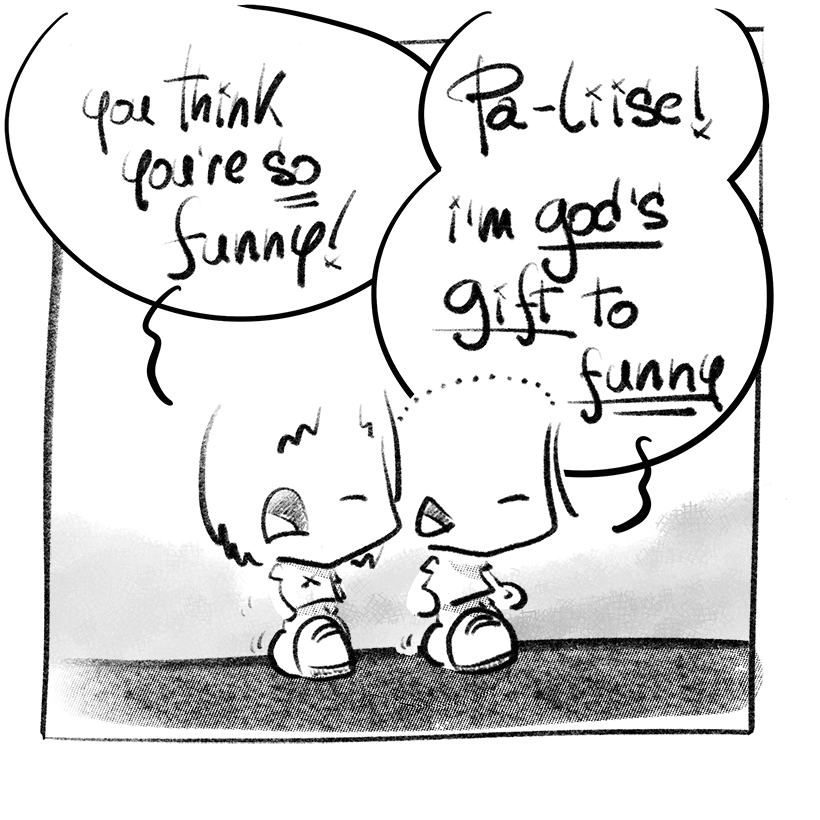 you think
you're so
funny!
Pa-liise!
i'm god's
gift to
funny